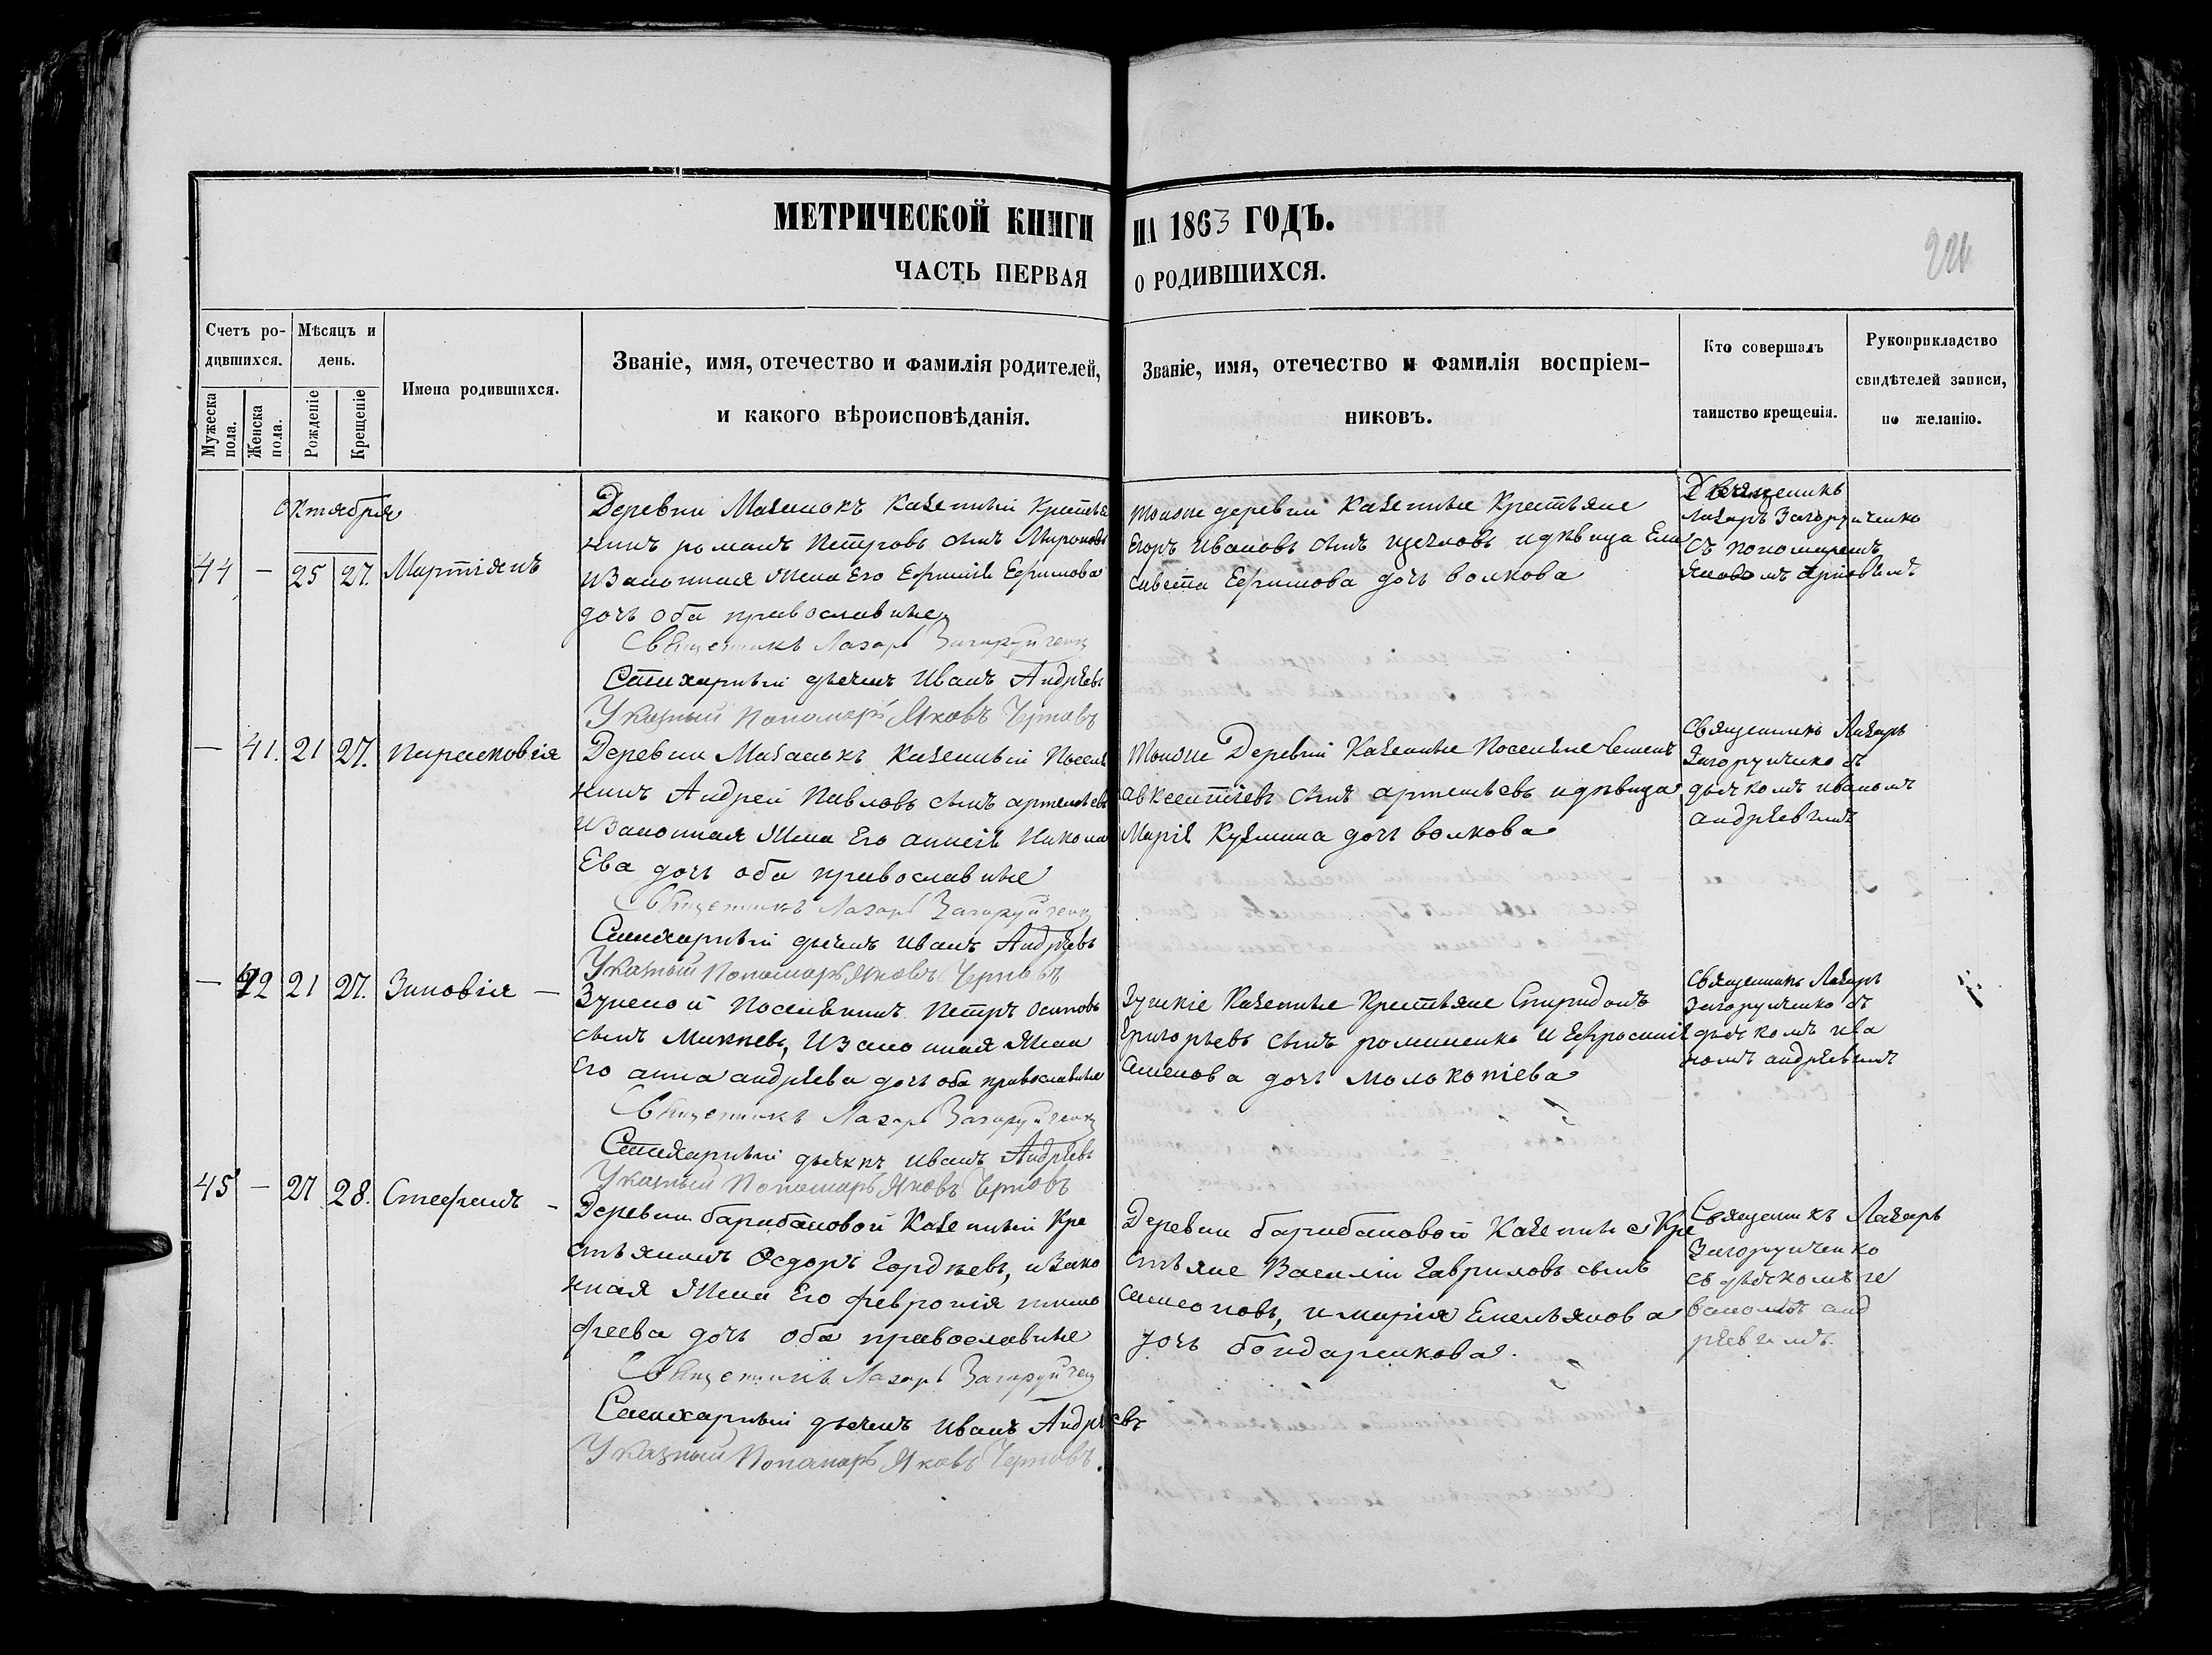 МЕТРИЧЕСКОЙ КНИГИ НА 1863 ГОДЪ.
ЧАСТЬ ПЕРВАЯ О РОДИВШИХСЯ.
Счетъ ро-
дившихся.
Мужеска пола.
Женска пола.
Мѣсяцъ и
день.
Рожденіе
Крещеніе
Имена родившихся.
Званіе, имя, отечество и фамилія родителей,
и какого вѣроисповѣданія.
Званіе, имя, отечество и фамилія воспріем-
никовъ.
Кто совершалъ
таинство крещенія.
Рукоприкладство
свидѣтелей записи,
по желанію.
Октября
44 — 25 27. Мартіянъ
Деревни Мазанокъ Казенный Крестья
нинъ романъ Петровъ сынъ Мироновъ
и Законная Жена Его Ефимія Ефимова
дочь оба православные
Священникъ Лазарь Загоруйченко
Стихарный дьячекъ Иванъ Андрѣевъ
Указный Пономарь Яковъ Чертовъ
тойже деревни Казенные Крестьяне
Егоръ Ивановъ сынъ и дѣвица Ели
савета Ефимова дочь волкова
Священникъ
Лазарь Загоруйченко
съ пономаремъ
Яковомъ
— 41. 21 27. Парасковія
Деревни Мазанокъ Казенный Поселя
нинъ Андрей Павловъ сынъ артемьевъ
и Законная Жена Его анисія Никола
Ева дочь оба православные
Священникъ Лазарь Загоруйченко
Стихарный дьячекъ Иванъ Андрѣевъ
Указный Пономарь Яковъ Чертовъ
тойже Деревни Казенные Поселяне Семенъ
авксентіевъ сынъ артемьевъ и дѣвица
Марія Кузмина дочь волкова
Священникъ Лазарь
Загоруйченко съ
дьячкомъ иваномъ
андрѣевымъ
— 42 21 27. Зиновія —
Зуйской Поселянинъ Петръ осиповъ
сынъ Михневъ, и Законная Жена
Его анна андрѣева дочь оба православные
Священникъ Лазарь Загоруйченко
Стихарный дьячекъ Иванъ Андрѣевъ
Указный Пономарь Яковъ Чертовъ
Зуйскіе Казенные Крестьяне Спиридонъ
Григорьевъ сынъ романенко и Ефросинія
Семенова дочь Молокотіева
Священникъ Лазарь
Загоруйченко съ
дьячкомъ ива
номъ андрѣевымъ
45 — 27 28. Стефанъ —
Деревни барабановой Казенный Кре
стьянинъ Ѳедоръ Гордѣевъ, и Зако
нная Жена Его февронія тимо
феева дочь оба православные
Священникъ Лазарь Загоруйченко
Стихарный дьячекъ Иванъ Андрѣевъ
Указный Пономарь Яковъ Чертовъ.
Деревни барабановой Казенные Кре
стьяне Василій Гавриловъ сынъ
симеоновъ, и марія Емельянова
дочь бондаренкова.
Священникъ Лазарь
Загоруйченко
съ дьячкомъ и
ваномъ анд
рѣевымъ.